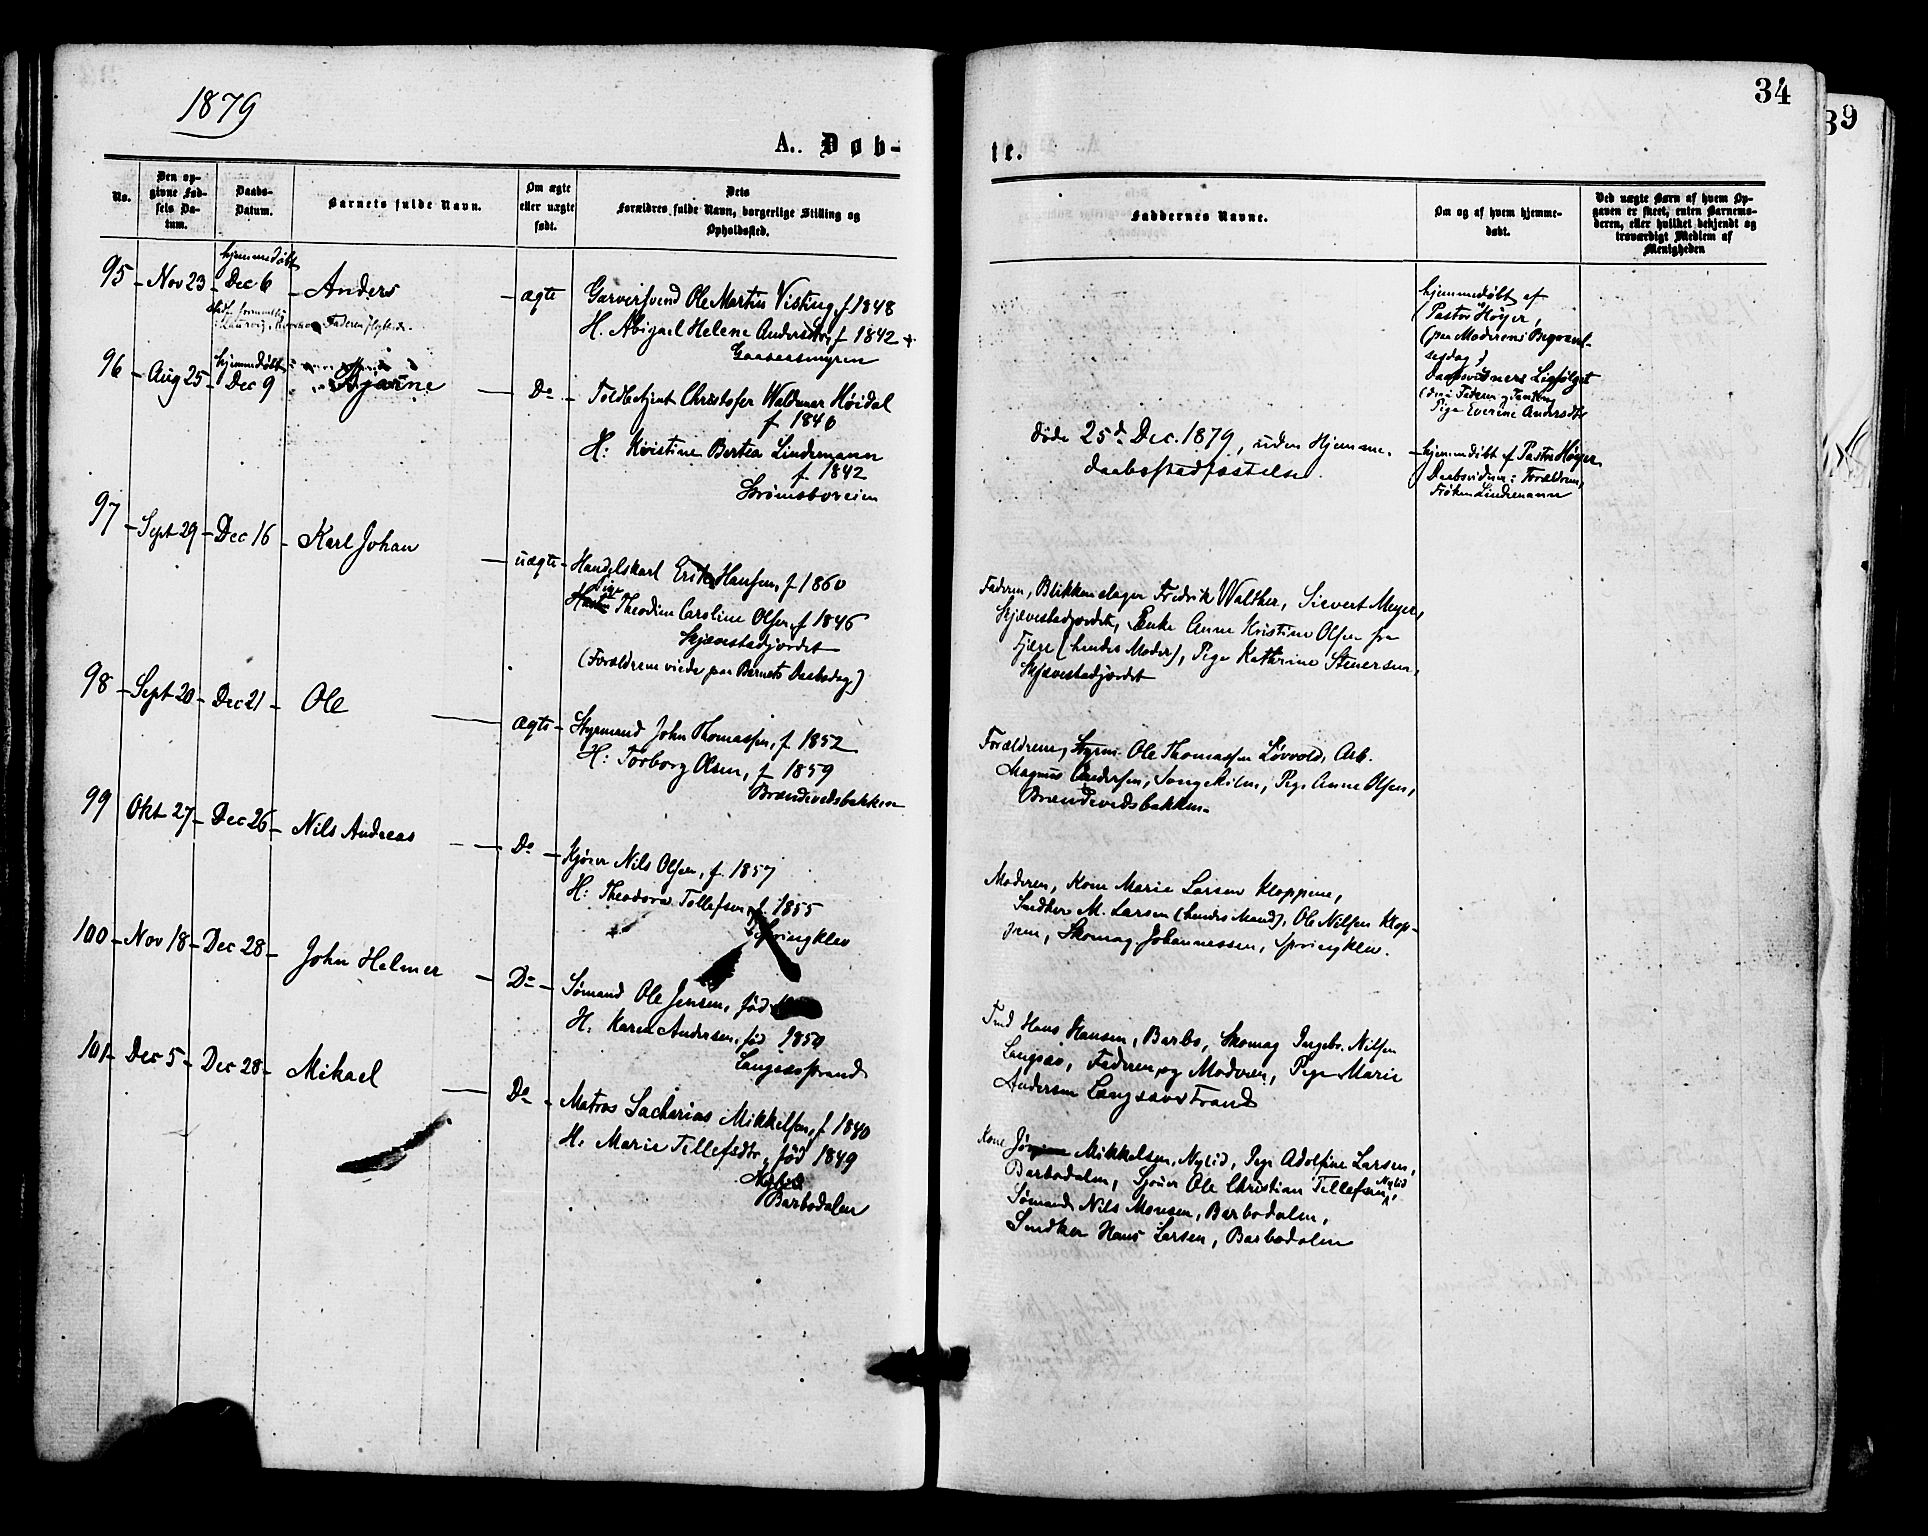 1879
34
39
A. Døb-
te.
No.
Den op-
givne Fød-
sels Da-
tum.
Daabs-
Datum.
Barnets fulde Navn.
Om ægte
eller uægte
født.
Dets
Forældres fulde Navn, borgerlige Stilling og
Opholdssted.
Faddernes Navne.
Om og af hvem hjemme-
døbt.
Ved uægte Børn af hvem Op-
gaven er skeet, enten Barnemo-
deren, eller hvilket bekjendt og
troværdigt Medlem af
Menigheden
hjemmedøbt
95 - Nov 23 - Dec 6 - Anders - ægte
Garversvend Ole Martin Visting, f 1848
H. Abigael Helene Andersdtr, f 1842 +
hjemmedøbt af
Pastor Høyer,
(paa Moderens Begravel-
sesdag)
Daabsvidner: Ligfølget
Pige Everine Andersdtr
96 - Aug 25 - hjemmedøbt
Dec 9 - Bjarne - Do -
Toldbetjent Christofer Waldemar Höidal
f 1840
H: Kristine Bertea Lindemann
f 1842
Strømsboveien
Døde 25de Dec. 1879, uden Hjemme-
daabsstadfæstelse.
hjemmedøbt af Pastor Høyer
Daabsvidner: Forældrene,
Frøken Lindemann
97 - Sept 29 - Dec 16 - Karl Johan - uægte -
Handelskarl Erik Hansen, f 1860
Pige
Theodine Caroline Olsen, f 1846
Skjævestadjordet
(Forældrene viede paa Barnets Daabsdag)
Faderen, Blikkenslager Fredrik Walther, Sievert Meyer,
Skjævestadjordet, Enke Anne Kristine Olsen fra
Fjære (hendes Moder), Pige Kathrine Steversen,
Skjævestadjordet
98 - Sept 20 - Dec 21 - Ole - ægte -
Styrmand John Thomassen, f 1852
H: Torborg Olsen, f 1859
Brændevedsbakken
Forældrene, Styrm. Ole Thomassen Løvvold, Arb.
Magnus Andersen, Songekilen, Pige Anne Olsen,
Brændevedsbakken
99 Okt 27 - Dec 26 - Nils Andreas - Do -
Nils Olsen, f. 1857
H: Theodora Tollefsen, f. 1855
Springklev
Moderen, Kone Marie Larsen Kloppene,
Snedker M. Larsen (hendes Mand), Ole Nilsen Klop-
pene, Skomag. Johannessen, Springklev.
100 - Nov 18 - Dec 28 - John Helmer - Do -
Sømand Ole Jensen, fød
H. Karen Andersen, fød 1850
Langsæstrand
Hans Hansen, Barbo, Skomag Ingebr. Nilsen
Langsæ, Faderen og Moderen, Pige Marie
Andersen Langsæstrand
101 - Dec 5 - Dec 28 - Mikael - Do -
Matros Sacharias Mikkelsen, f 1840
H. Marie Tellefsdtr, fød 1849
Barbodalen
Kone Mikkelsen, Nylid, Pige Adolfine Larsen,
Barbodalen, Ole Christian Tellefsen, Nylid
Sømand Nils Monsen, Barbodalen,
Snedker Hans Larsen, Barbodalen